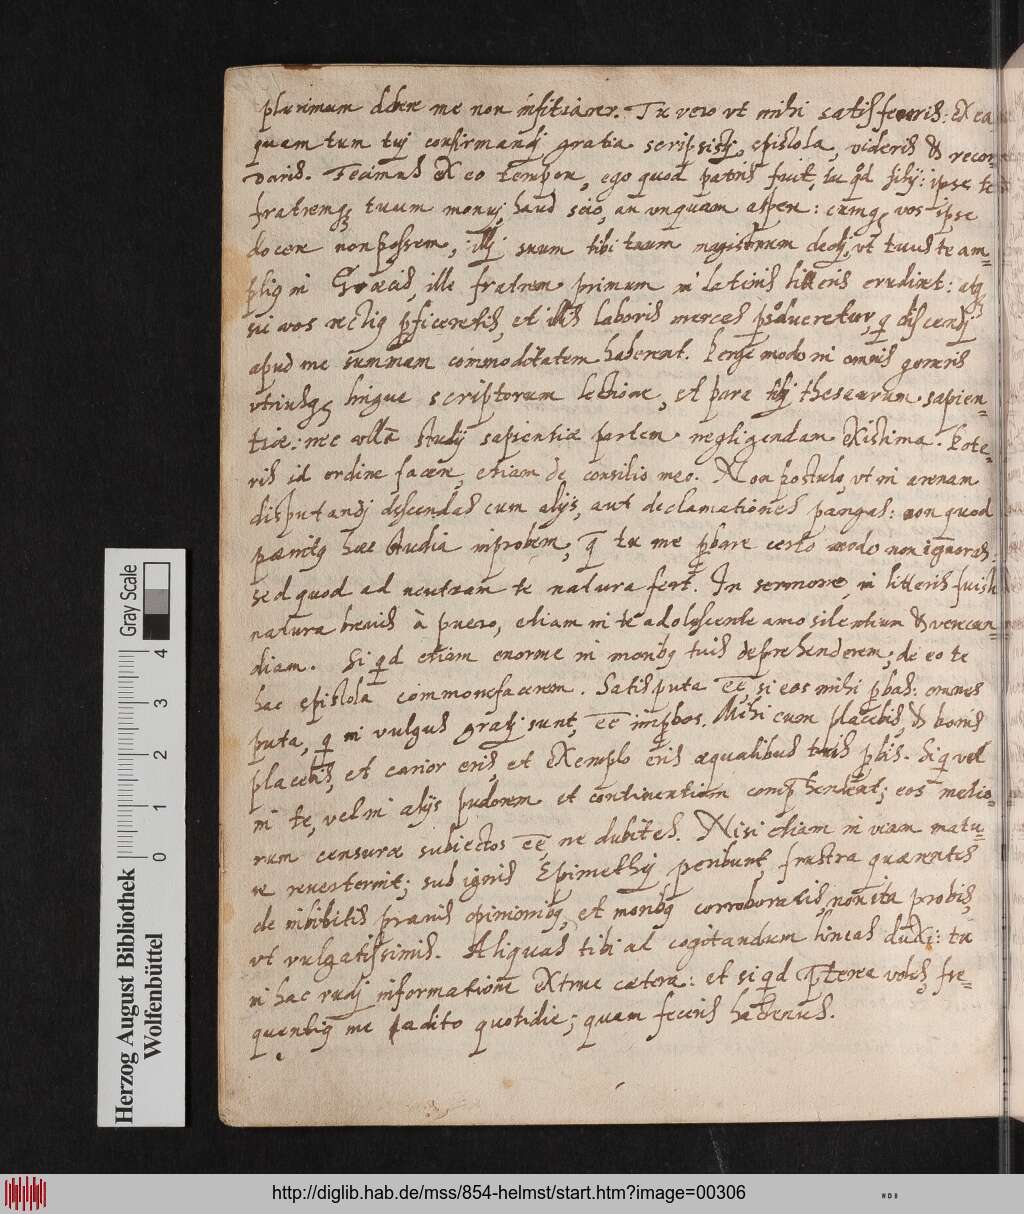 plurimum debere me non inficiarer. Tu vero vt mihi satisfeceris: ex ea
quam tum tuj confirmandj gratia scripsistj epistola, videris & recor-
daris. Fecimus ex eo tempore, ego quod patris fuit, tu qd filij: ipse te
fratremq tuum monuj, haud scio, an vnquam aspere: cumq vos ipse
docere non possem, illj suum tibi tuum magistrum dedj, vt tuus te am-
pliq in Graecis, ille fratrem primum in latinis litteris erudiret: atq
sic vos rectiq pficeretis, et illis laboris merces psolveretur, q discendj
apud me summam commoditatem haberent. Perge modo in omnis generis
vtriusq linguae scriptorum lectione, et para tibj thesaurum sapien-
tiae: nec vllā studij sapientiae partem negligendam existima. Pote-
ris id ordine facere, etiam de consilio meo. Non postulo, vt in arenam
disputandj descendas cum alijs, aut declamationes pangas: non quod
paenitq haec studia improbem, q tu me pbare certo modo non ignoras:
sed quod ad neutram te natura fert. In sermone, in litteris fuisti
natura brevis à puero, etiam in te adolescente amo silentium & verecun-
diam. Si qd etiam enorme in moribq tuis deprehenderem; de eo te
hac epistola commonefacerem. Satis puta eē, si eos mihi pbas: omnes
puta, q in vulgus gratj sunt, eē impbos. Mihi cum placebis, & bonis
placebis, et carior eris, et exemplo eris aequalibus tuis pbis. Si q vel
in te, vel in alijs pudorem et continentiam comphendent; eos melio-
rum censurae subiectos eē, ne dubites. Nisi etiam in viam matu-
re reverterint; sub ignis Epimethej peribunt, frustra quaerentes
de inbibitis pravis opinionibq, et moribq corroboratis, non ita probis,
vt vulgatissimis. Aliquas tibi ad cogitandum lineas duxi: tu
in hac rudj informatione extrue caetera: et si qd pterea voles, fre-
quentiq me adito quotidie; quam feceris hactenus.
Gray Scale
0 1 2 3 4
Herzog August Bibliothek
Wolfenbüttel
http://diglib.hab.de/mss/854-helmst/start.htm?image=00306
WDB